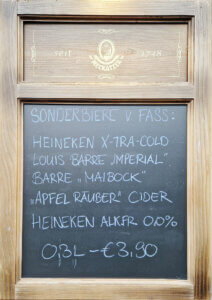 seit 1718
SONDERBIERE V FASS:
HEINEKEN X-TRA-COLD
LOUIS BARRE „IMPERIAL"
BARRE „MAIBOCK"
„APFEL RÄUBER" CIDER
HEINEKEN ALKFR 0,0%
0,3L – €3,90